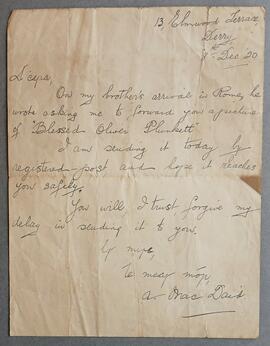 13, Elmwood Terrace,
Derry
8th Dec 20
A cara,
On my brother's arrival in Rome, he
wrote asking me to forward you a picture
of "Blessed Oliver Plunkett"
I am sending it today by
registered post and hope it reaches
you safely.
You will, I trust forgive my
delay in sending it to you.
Le meas mór,
Mac Daid